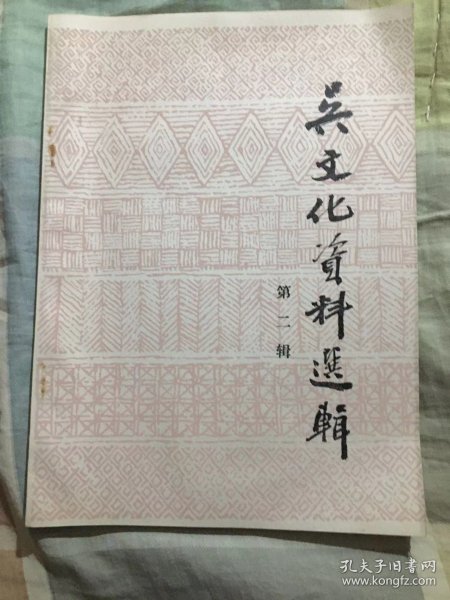 吳文化資料選輯
第二辑
孔夫子旧书网
www.kongfz.com